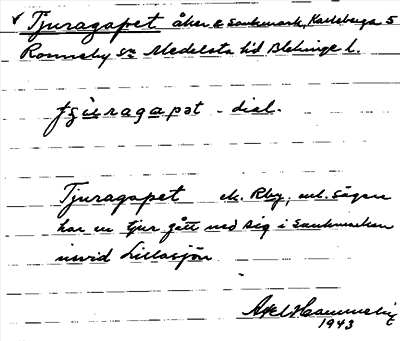 √ Tjuragapet åker & sankmark, Karlsberga 5
Ronneby sn Medelsta hd Blekinge l.
- dial.
Tjuragapet ek. Rby, enl. sägen
har en tjur gått ned sig i sankmarken
invid Lillasjön
Axel
1943